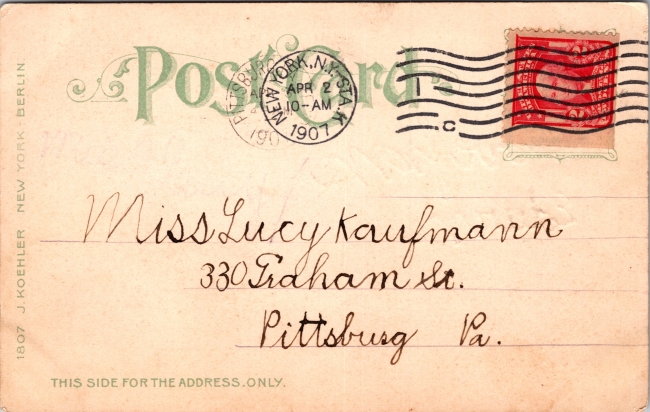 Post Card
PITTSBURG
190
NEW YORK, N.Y. STA. K
APR 2
10-AM
1907
1
C
Miss Lucy Kaufmann
330 Graham St.
Pittsburg Pa.
THIS SIDE FOR THE ADDRESS ONLY.
1807 J. KOEHLER NEW YORK · BERLIN